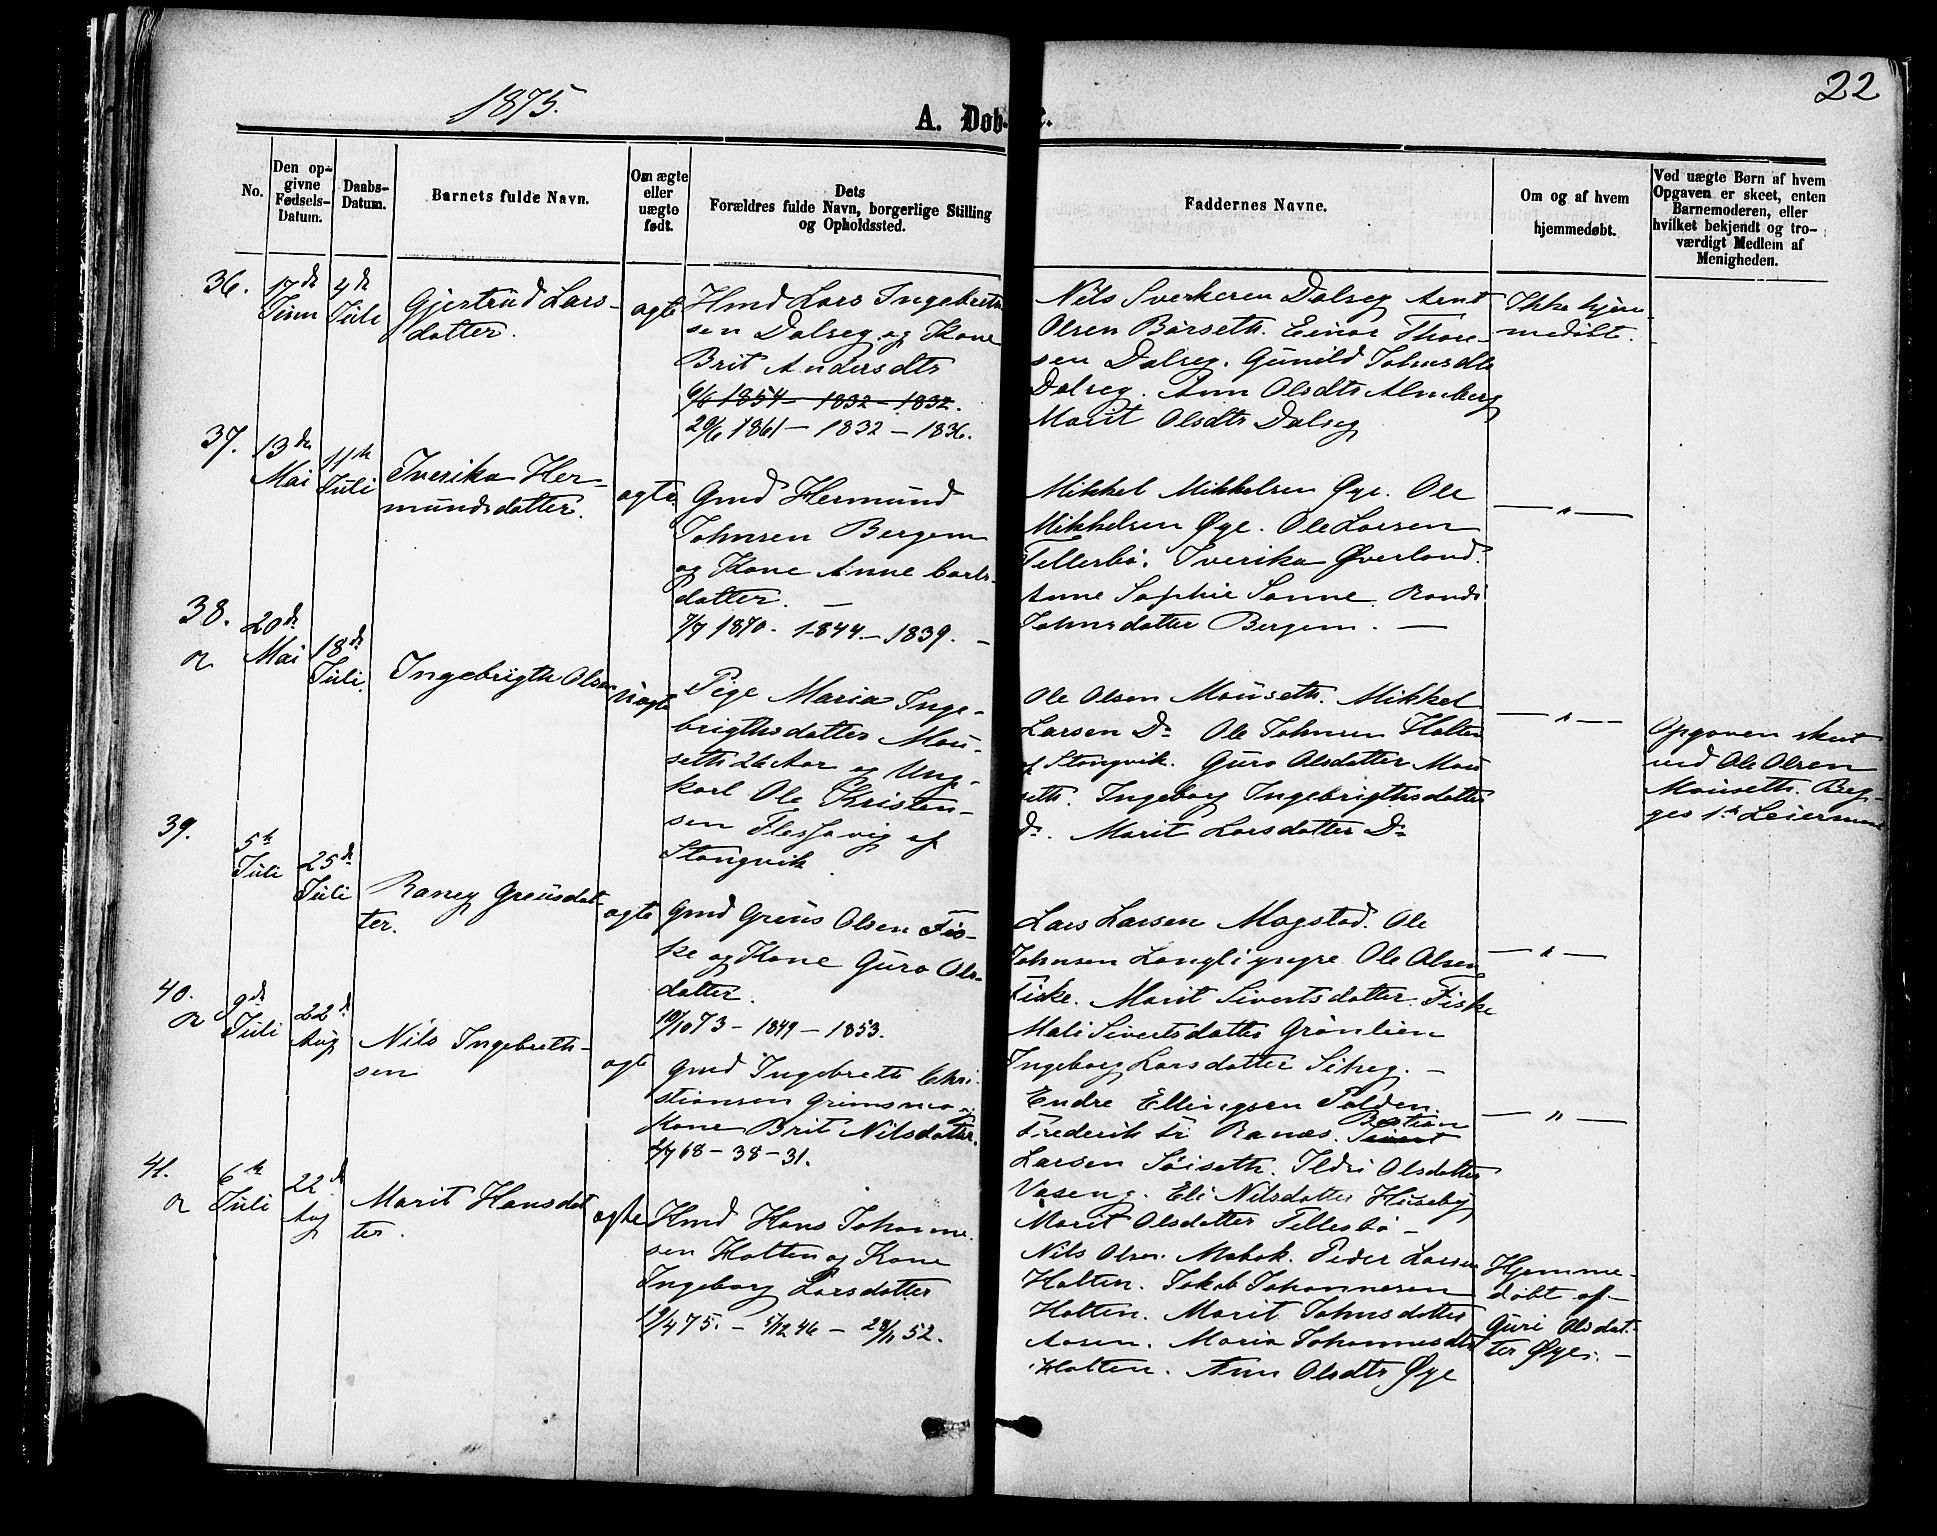 1875.
A. Døb-
e.
22
No.
Den op-
givne
Fødsels-
Datum.
Daabs-
Datum.
Barnets fulde Navn.
Om ægte
eller
uægte
født.
Dets
Forældres fulde Navn, borgerlige Stilling
og Opholdssted.
Faddernes Navne.
Om og af hvem
hjemmedøbt.
Ved uægte Børn af hvem
Opgaven er skeet, enten
Barnemoderen, eller
hvilket bekjendt og tro-
værdigt Medlem af
Menigheden.
36.
17de
Juni
4de
Juli
Gjertrud Lars-
datter.
ægte
Hmd Lars Ingebreth
sen Dalseg og Kone
Brit Andersdtr
9/6 1854 - 1832 - 1832.
29/6 1861 - 1832 - 1836.
Nils Sverkersen Dalseg Arnt
Olsen Børseth. Einar Thore-
sen Dalseg. Gunild Johnsdtr
Dalseg. Ann Olsdtr Almberg
Marit Olsdtr Dalseg
Ikke hjem
medøbt.
37.
13de
Mai
11te
Juli
Iverika Her-
mundsdatter.
ægte
Gmd Hermund
Johnsen Bergem
og Kone Anne Carls-
datter. -
7/7 1870. 1844 - 1839. -
Mikkel Mikkelsen Øye. Ole
Mikkelsen Øye. Ole Larsen
Tellesbø. Iverika Øverland.
Anne Sophie Sonne. Randi
Johnsdatter Bergem. -
- " -
38.
20de
Mai
18de
Juli.
Ingebrigth Olsen
uægte
Pige Maria Inge-
brigthsdatter Mou-
seth 26 Aar og Ung-
karl Ole Kristen-
sen Flessavig af
Stangvik.
Ole Olsen Mouseth. Mikkel
Larsen Do Ole Johnsen Halten
af Stangvik. Guro Olsdatter Mou
seth. Ingeborg Ingebrigthsdatter
Do. Marit Larsdatter Do
- " -
Opgaven skeet
ved Ole Olsen
Mouseth. Beg-
ges 1ste Leiermaal
39.
5te
Juli
25de
Juli
Raney Greusdat-
ter.
ægte
Gmd Greus Olsen Fis-
ke og Kone Guro Ols-
datter.
19/10 73 - 1849 - 1853.
Lars Larsen Magstad. Ole
Johnsen Langli yngre Ole Olsen
Fiske. Marit Sivertsdatter Fiske
Mali Sivertsdatter Grønlien
Ingeborg Larsdatter Sitseg. -
- " -
40.
9de
Juli
22de
Aug
Nils Ingebreth-
sen
ægte
Gmd Ingebreth Chri-
stiansen Grimsmo og
Kone Brit Nilsdatter.
2/7 68 - 38 - 31.
Endre Ellingsen Polden.
Frederik Fr Ranes. Bastian
Larsen Søiseth. Ildri Olsdatter
Vaseng. Eli Nilsdatter Huseby
Marit Olsdatter Tellesbø -
- " -
41.
6te
Juli
22de
Aug
Marit Hansdat
ter.
ægte
Hmd Hans Johanne
sen Halten og Kone
Ingeborg Larsdatter
19/4 75. - 5/12 46 - 28/11 52.
Nils Olsen Møkok. Peder Larsen
Halten. Jakob Johannesen
Halten. Marit Johnsdatter
Aasen. Maria Johannesdtr
Halten. Ann Olsdtr Øye
Hjemme-
døbt af
Guri Olsdat-
ter Øye. -